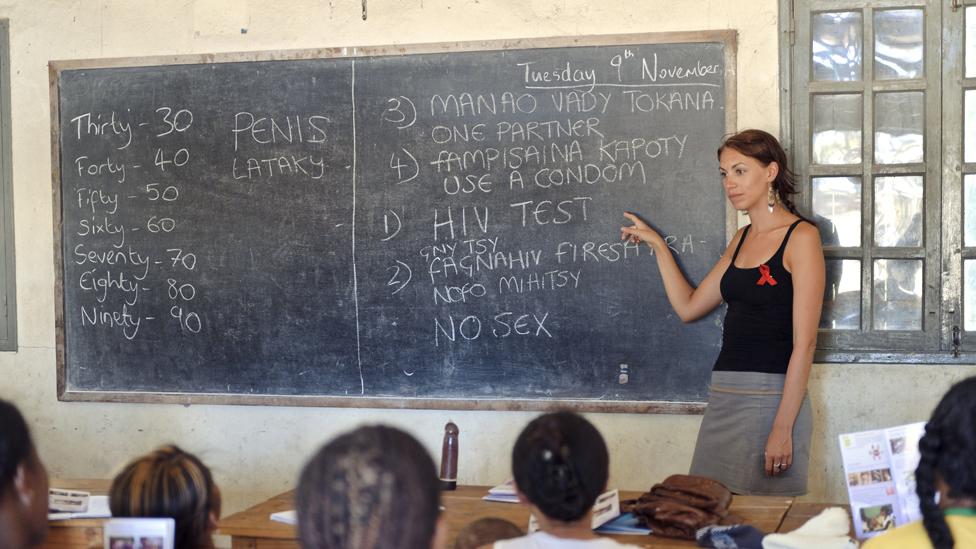 Thirty - 30
Forty - 40
Fifty - 50
Sixty - 60
Seventy - 70
Eighty - 80
Ninety - 90
PENIS
LATAKY
Tuesday 9th November
3) MANAO VADY TOKANA
ONE PARTNER
4) FAMPISAINA KAPOTY
USE A CONDOM
1) HIV TEST
GNY TSY
2) FAGNAHIV FIRESAKA RA-
NOFO MIHITSY
NO SEX